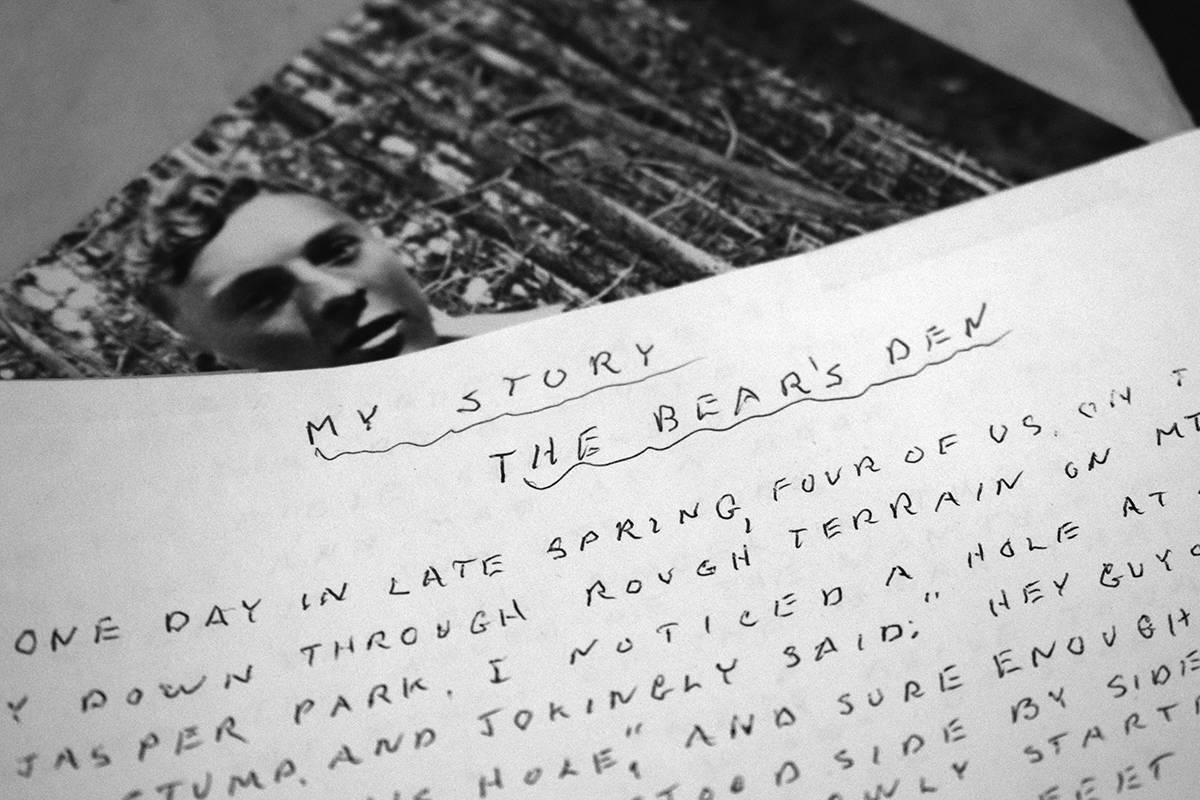 MY STORY
THE BEAR'S DEN
ONE DAY IN LATE SPRING, FOUR OF US, ON T
Y DOWN THROUGH ROUGH TERRAIN ON MT
JASPER PARK. I NOTICED A HOLE AT
STUMP, AND JOKINGLY SAID: " HEY GUYS
HOLE," AND SURE ENOUGH
STOOD SIDE BY SIDE
START
FEET